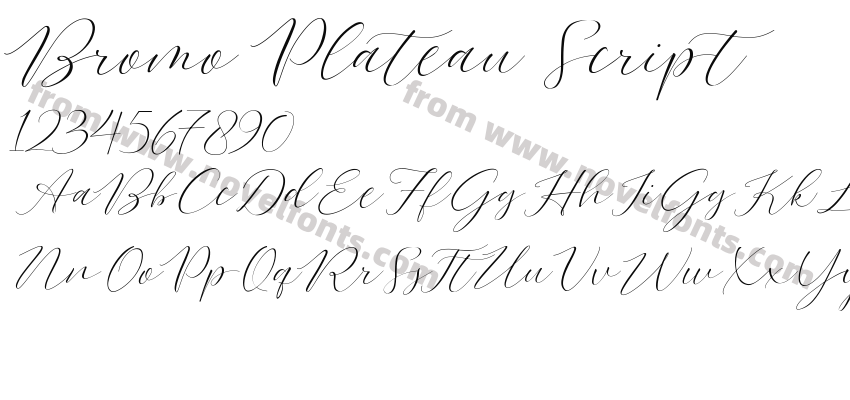 Bromo Plateau Script
1234567890
AaBbCcDdEeFfGgHhIiGgKkL
NnOoPpQqRrSsTtUuVvWwXxYy
from www.novelfonts.com
from www.novelfonts.com